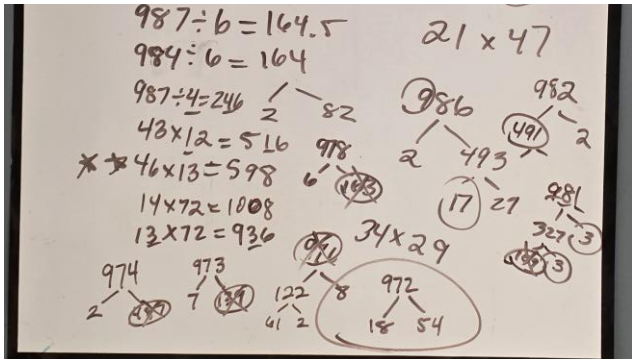 987÷6=164.5
984÷6=164
2 82
987÷4=246
43×12=516
46×13=598
14×72=1008
13×72=936
21×47
986
2 493
17 27
982
491 2
978
6 163
981
327 3
3
34×29
974
2
973
7 139
976
122 8
61 2
972
18 54